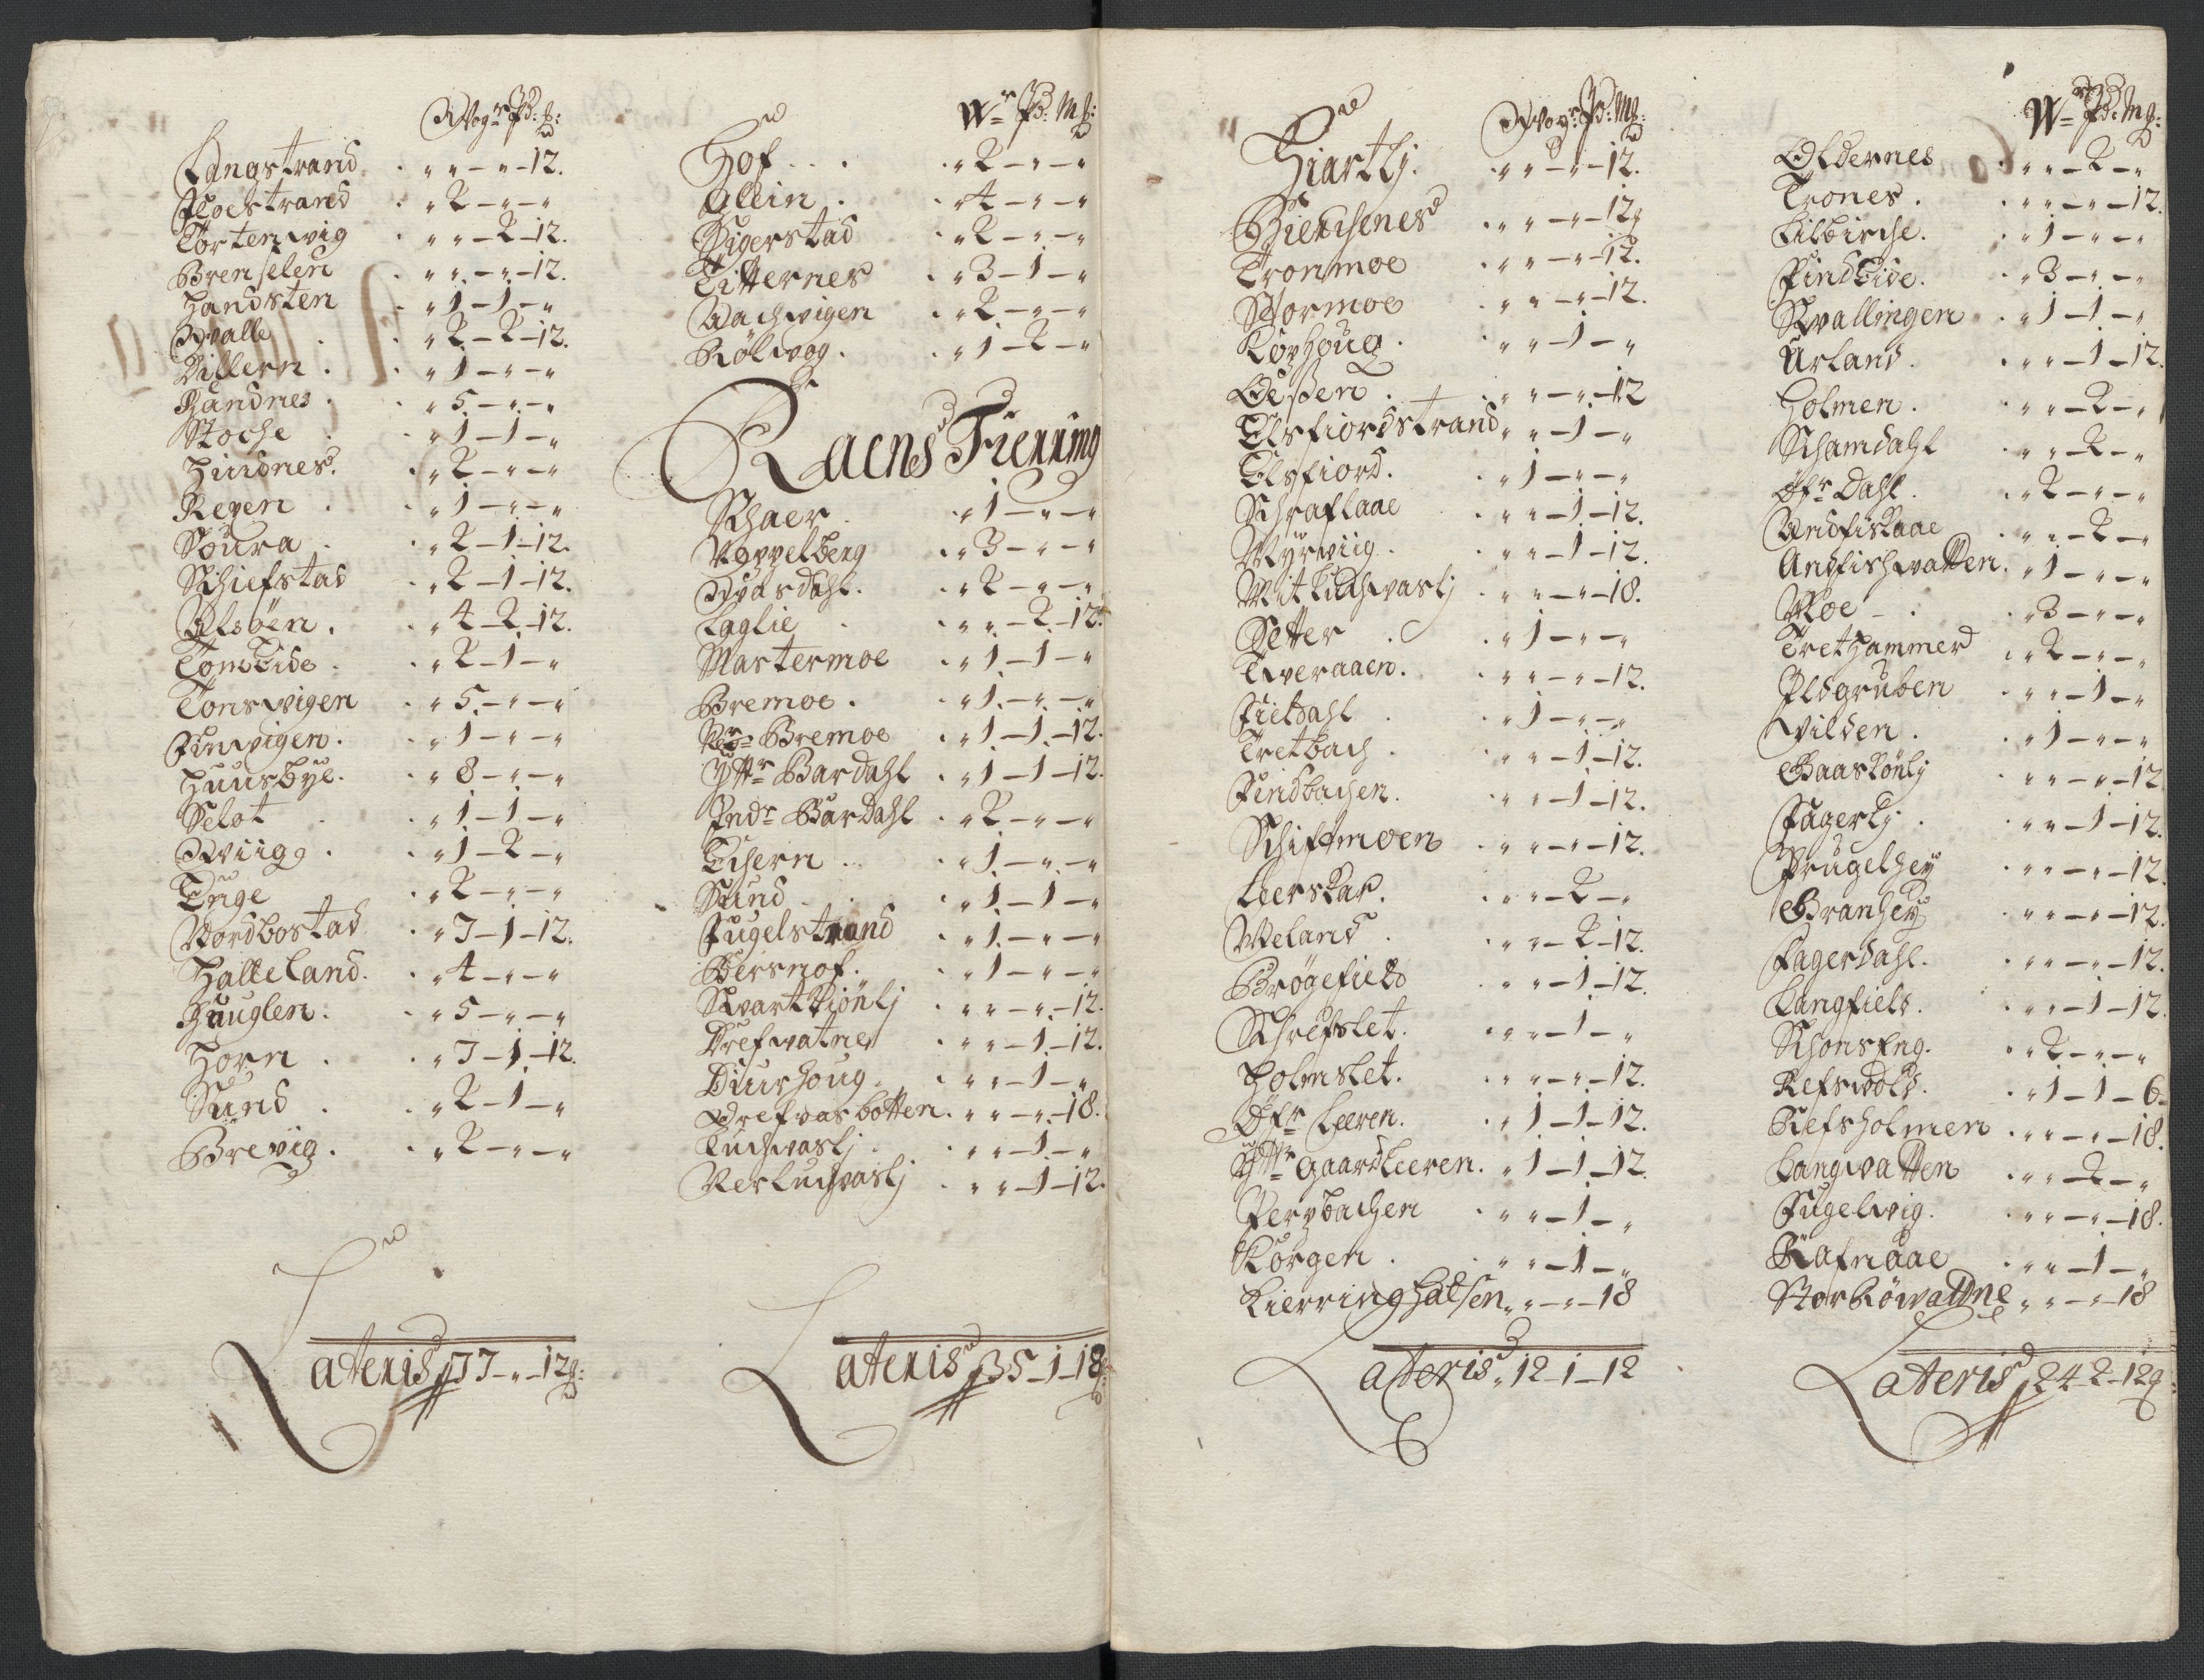 Wogr Pd: ß:
Langstrand . „ „ – „ – 12.
Floestrand . „ 2 – „ – „
Torterwig . „ „ – 2 – 12.
Brenselen . „ „ – „ – 12.
Handsten . „ 1 – 1 – „
Qvalle . „ 2 – 2 – 12.
Dillern . „ 1 – „ – „
Sandnes . „ 5 – „ – „
Stoche . „ 1 – 1 – „
Hindnes . „ 2 – „ – „
Regen . „ 1 – „ – „
Soura . „ 2 – 1 – 12.
Schiefstad . „ 2 – 1 – 12.
Alsöen . „ 4 – 2 – 12.
Tomeide . „ 2 – 1 – „
Tonswigen . „ 5 – „ – „
Finwigen . „ 1 – „ – „
Huusbye . „ 8 – „ – „
Seløt . „ 1 – 1 – „
Qwiig . „ 1 – 2 – „
Enge . „ 2 – „ – „
Nordbostad . „ 3 – 1 – 12.
Halleland . „ 4 – „ – „
Hauglen . „ 5 – „ – „
Horn . „ 3 – 1 – 12.
Sund . „ 2 – 1 – „
Brevig . „ 2 – „ – „
Lateris 77 – „ – 12 ß:
W: Pd: Mß:
Hof . . . „ 2 – „ – „
Glein . „ 4 – „ – „
Digerstad . „ 2 – „ – „
Titternes . „ 3 – 1 – „
Wachwigen . „ 2 – „ – „
Rölwog . „ 1 – 2 – „
Raens Fierring
Schaer . „ 1 – „ – „
Neppelberg . „ 3 – „ – „
Qvasdahl . „ 2 – „ – „
Laglie . „ „ – 2 – 12.
Mastermoe . „ 1 – 1 – „
Bremoe . „ 1 – „ – „
Nr: Bremoe . „ 1 – 1 – 12.
Yttr Bardahl . „ 1 – 1 – 12.
Indr Bardahl . „ 2 – „ – „
Echern . „ 1 – „ – „
Sund . „ 1 – 1 – „
Fugelstrand . „ 1 – „ – „
Bersnof . „ 1 – „ – „
Svarttiönlj . „ „ – „ – 12.
Drefvatne . „ „ – 1 – 12.
Duurhoug . „ „ – 1 – „
Drefvasbotten . „ „ – „ – 18.
Luchvaslj . „ „ – 1 – „
Nerluchvaslj . „ „ – 1 – 12.
Lateris 35 – 1 – 18
Wogr: Pd: Mß:
Hiartlj . „ „ – „ – 12.
Bierchenes . „ „ – „ – 12ß
Tronmoe . „ „ – „ – 12.
Stormoe . „ „ – „ – 12.
Korhoug . „ „ – 1 – „
Oessen . „ „ – „ – 12
Elsfiordstrand „ „ – 1 – „
Elsfiord . „ 1 – „ – „
Schraflaae . „ „ – 1 – 12.
Myrviig . „ „ – 1 – 12.
Mitluchvaslj . „ „ – „ – 18.
Setter . „ 1 – „ – „
Tveraaen . „ „ – „ – 12.
Fieldahl . „ 1 – „ – „
Tretbach . „ „ – 1 – 12.
Findbachen . „ „ – 1 – 12.
Schiftmoen . „ „ – „ – 12.
Leerskar . „ „ – 2 – „
Meland . „ „ – 2 – 12.
Brøgefield . „ „ – 1 – 12.
Schrefslet . „ „ – 1 – „
Holmslet . „ „ – „ – 12.
Öfr Leeren . „ 1 – 1 – 12.
Yttr Gaardleeren . „ 1 – 1 – 12.
Pervbachen . „ „ – 1 – „
Korgen . „ „ – 1 – „
Kierringhalsen „ „ – „ – 18
Lateris 12 – 1 – 12
W: Pd: Mß:
Oldernes . „ „ – 2 – „
Trones . „ „ – „ – 12.
Lilbirche . „ 1 – „ – „
Findeide . „ 3 – „ – „
Qvallingen . „ 1 – 1 – „
Urland . „ „ – 1 – 12.
Holmen . „ „ – 2 – „
Schamdahl . „ „ – 2 – „
Öfr Dahl . „ 2 – „ – „
Andfiskaae . „ „ – 2 – „
Andfischvatten . „ 1 – „ – „
Moe – . „ 3 – „ – „
Trethammer . „ 2 – „ – „
Ildgruben . „ „ – 1 – „
Vilden . „ 1 – „ – „
Gaastiönlj . „ „ – „ – 12
Fagerlj . „ „ – 1 – 12.
Prugelhey . „ „ – „ – 12.
Granhey . „ „ – „ – 12.
Fagerdahl . „ „ – „ – 12.
Langfield . „ „ – 1 – 12.
Schonseng . „ 2 – „ – „
Refswold . „ 1 – 1 – 6
Refsholmen . „ „ – „ – 18.
Langvatten . „ „ – 2 – „
Fugelvig . „ „ – „ – 18.
Rafnaae . „ „ – 1 – „
Storböwattne „ „ – „ – 18
Lateris 24 – 2 – 12ß